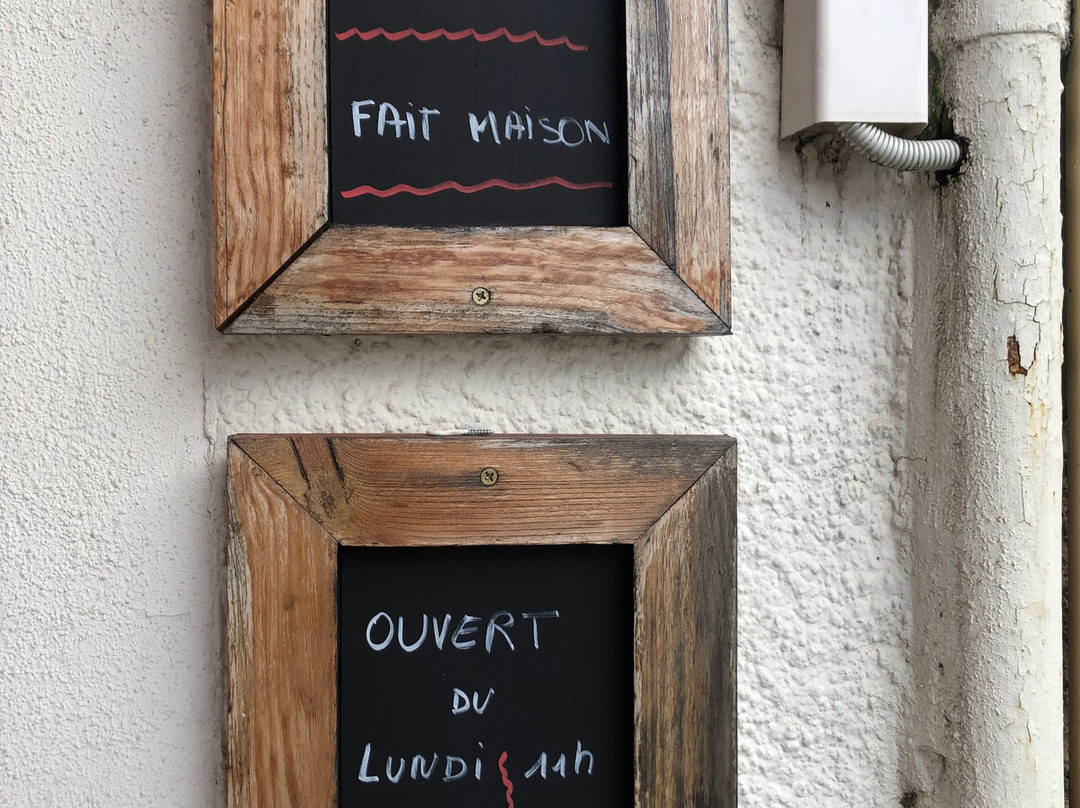 FAiT MAiSON
OUVERT
DU
LUNDi 11h